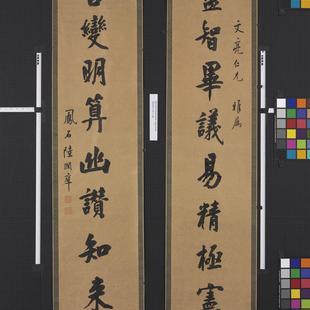 文亮仁兄 雅屬
智畢議易精極憲
變明算幽讚知来
鳳石陸潤庠